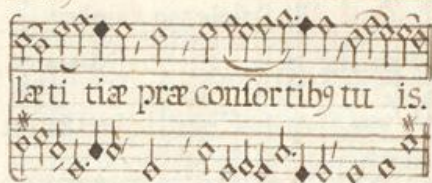 læti tiæ præ conſortibꝰ tu is.